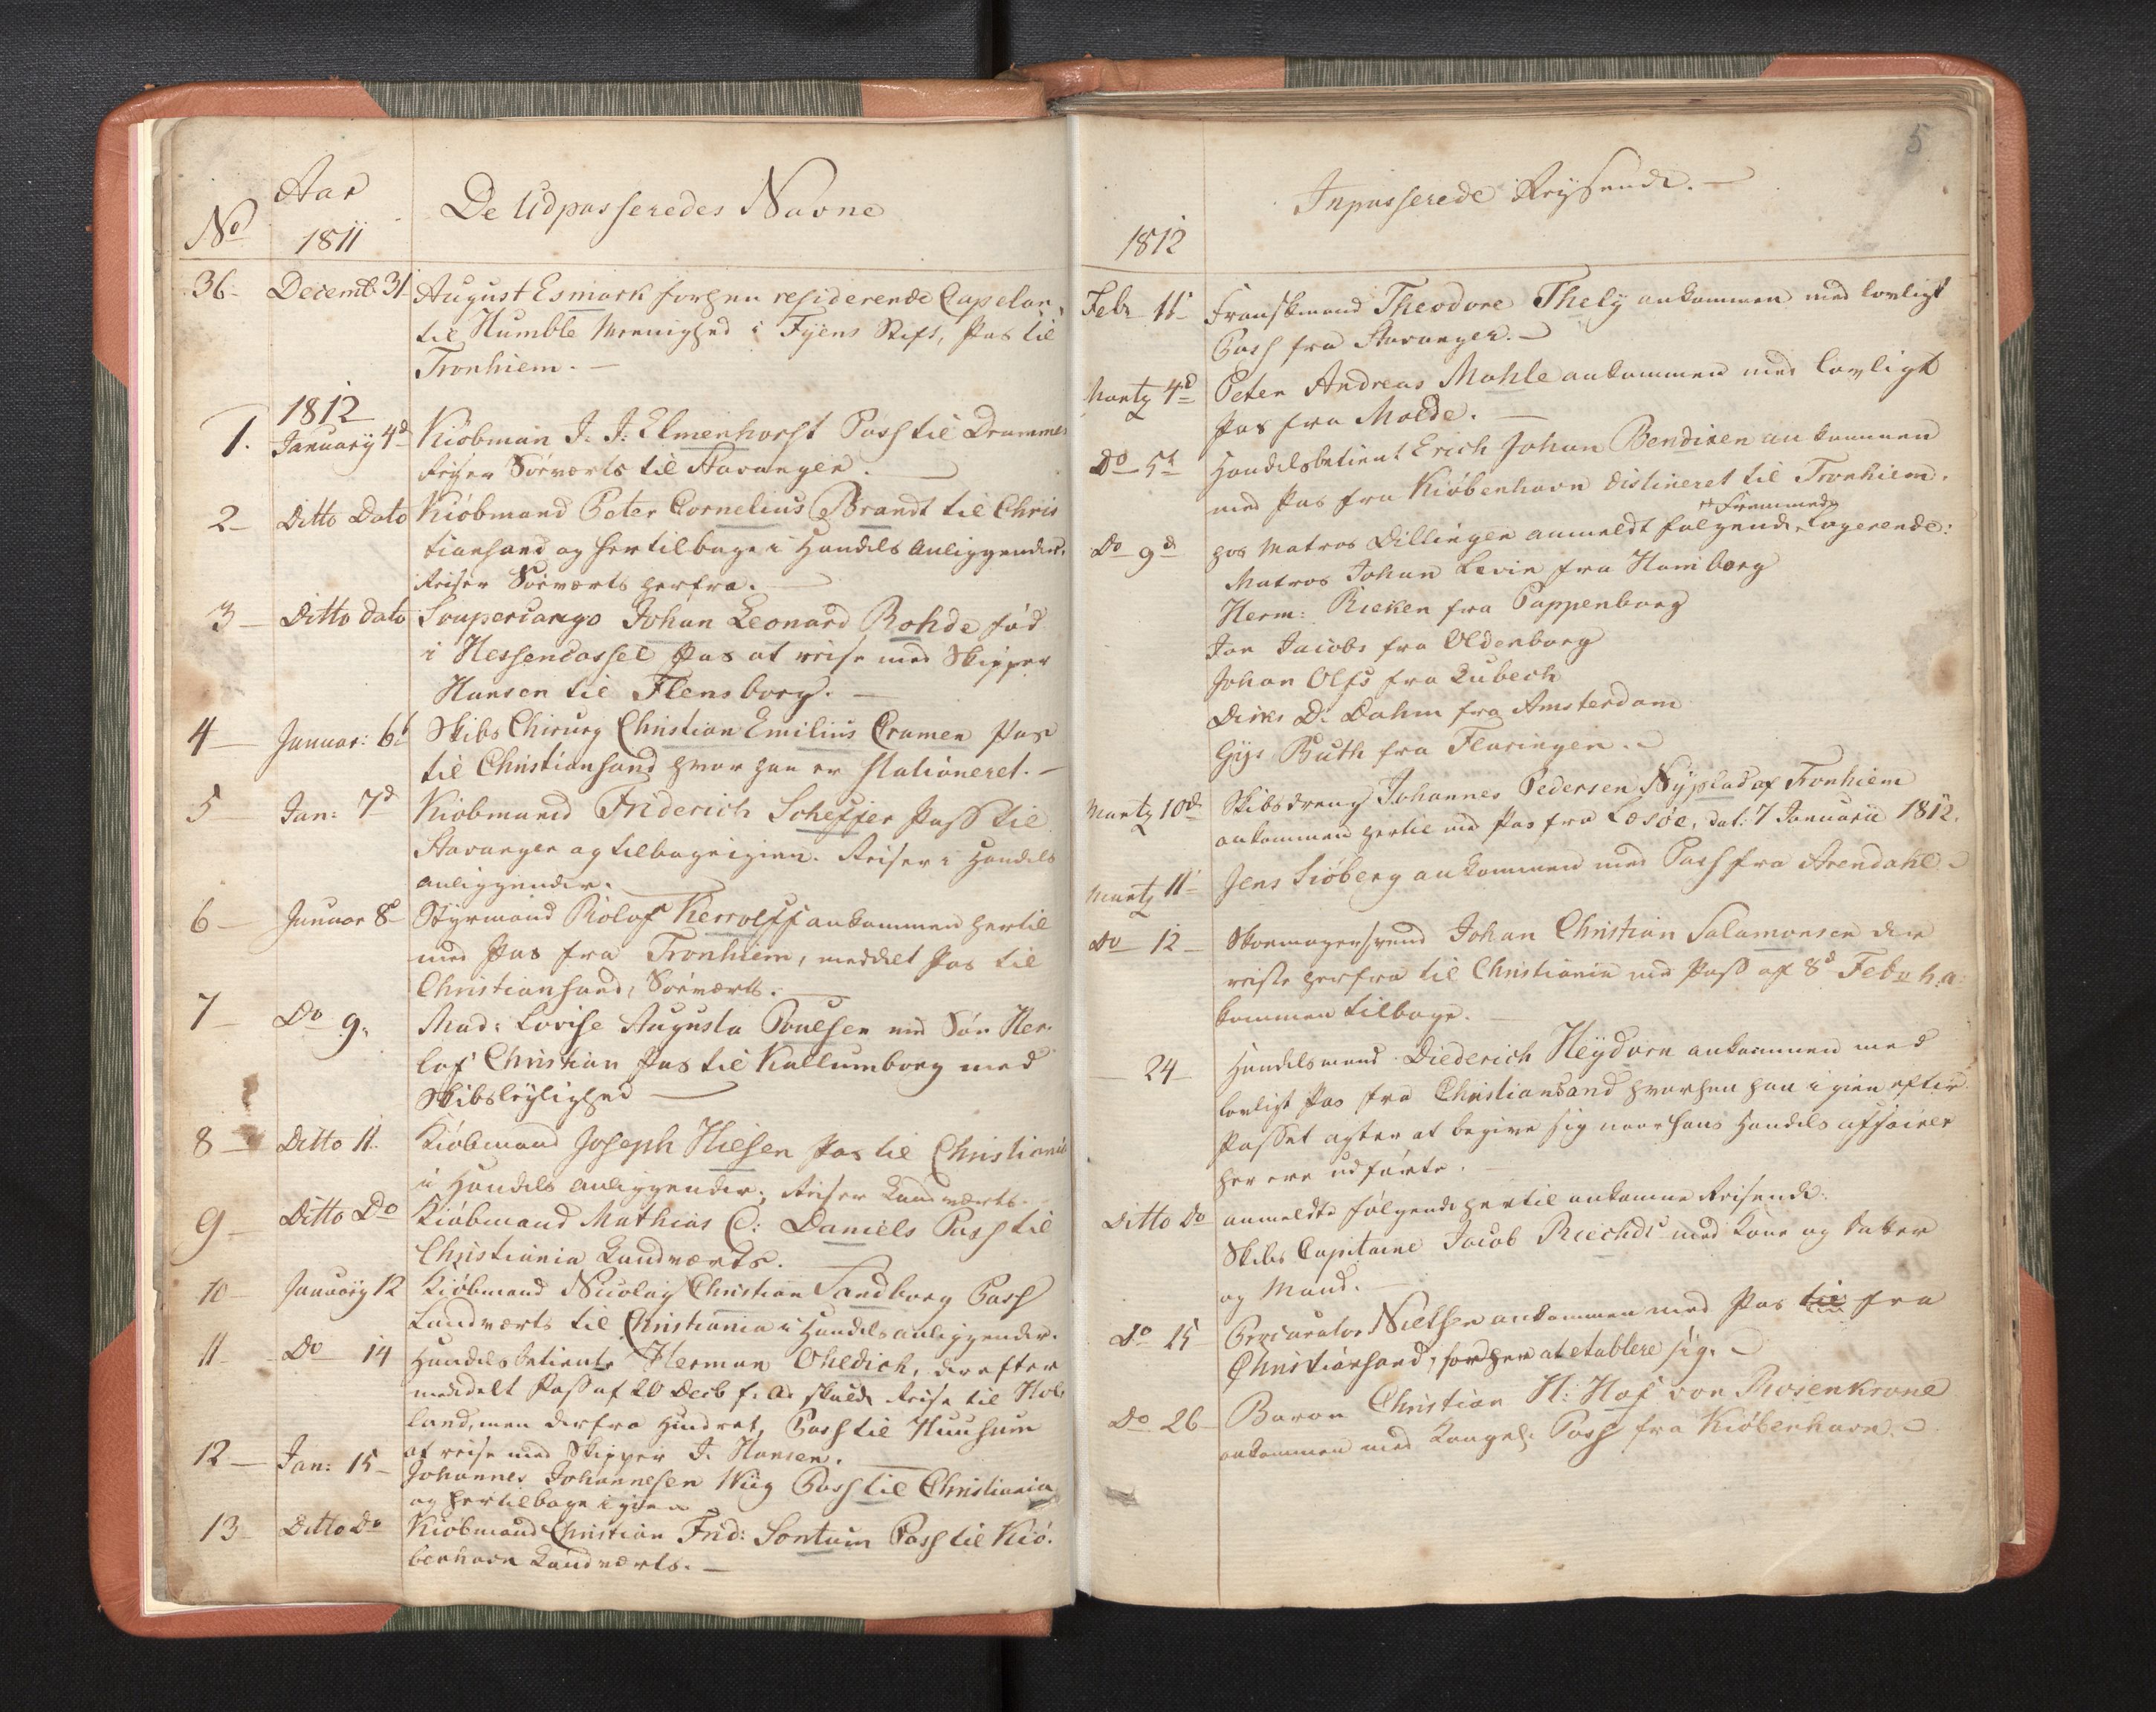 Aar
No 1811 De Udpasseredes Navne
36- Decemb. 31 August Esmark forhen residerende Capelan
til Humble Menighed i Fyens Stift, Pas til
Tronhiem. —
1812
1. January 4d Kiöbman J. J. Elmenhorst Pass til Drammen
Reiser Söeværts til Stavanger. —
2- Ditto Dato Kiöbmand Peter Cornelius Brandt til Chris
tiansand og hertilbage i Handels Anliggender.
Reiser Söeværts herfra. —
3- Ditto dato Soupercargo Johan Leonard Rohde föd
i Hessencassel Pas at reise med Skipper
Hansen til Flensborg. —
4- Januar: 6t Skibs Chirurg Christian Emilius Cramer Pas
til Christiansand hvor han er stationeret. —
5 Jan: 7d Kiöbmand Friderich Scheffer Pass til
Stavanger og tilbage igien. Reiser i Handels
Anliggender.
6- Januar 8d Styrmand Rolof Kerrolff ankommen hertil
med Pas fra Tronhiem, meddelt Pas til
Christiansand, Söeværts.
7- Do 9. Mad: Lovise Augusta Poulsen med Sön Her
lof Christian Pas til Kallumborg med
Skibsleylighed —
8- Ditto 11. Kiöbmand Joseph Nielsen Pas til Christiania
i Handels anliggender. Reiser Landværts.
9- Ditto Do Kiöbmand Mathias C: Daniels Pass til
Christiania Landværts. —
10- January 12 Kiöbmand Nicolay Christian Sandborg Pass
Landværts til Christiania i Handels anliggender.
11- Do 14 Handels betiente Herman Ohldich, der efter
meddelt Pass af 20 Decb f. A. skulde Reise til Hol
land, men derfra hindret, Pass til Huusum
at reise med Skipper J. Hansen. —
12- Jan: 15- Johannes Johannesen Wiig Pass til Christiania
og hertilbage igien
13- Ditto Do Kiöbmand Christian Frid: Sontum Pass til Kiö-
benhavn Landværts. —
5
Inpasserede Reysende. —
1812
Febr 11- Franskmand Theodore Thely ankommen med lovligt
Pass fra Stavanger. —
Martz 4d Peter Andreas Mohle ankommen med lovligt
Pas fra Molde. —
Do 5t Handelsbetient Erich Johan Bendixen ankommen
med Pas fra Kiöbenhavn distineret til Tronhiem.
+ Fremmede
Do 9d hos Matros Dillinger anmeldt følgende Logerende:
Matros Johan Levin fra Hamborg
Herm: Rieken fra Pappenborg
Jan Jacobs fra Oldenborg
Johan Olfs fra Lubech
Dirks D. Dahm fra Amsterdam
Gijs Buth fra Flaringen.
Martz 10d Skibsdreng Johannes Pedersen Nyplads af Tronhiem
ankommen hertil med Pas fra Læsöe, dat: 7 Januarii 1812.
Martz 11- Jens Siöberg ankommen med Pass fra Arendahl
Do 12- Skomagersvend Johan Christian Salamonsen der
reiste herfra til Christiania med Pass af 8d Febr h. a.
kommen tilbage. —
— 24- Handelsmand Diederich Heydorn ankommen med
lovligt Pas fra Christiansand hvorhen han igien efter
Passet agter at begive sig naar hans Handels affairer
her ere udförte. —
Ditto Do anmeldte fölgende hertil ankomne Reisende:
Skibs Capitaine Jacob Riechds med Kone og
og Mand. —
Do 25 Procurator Nielsen ankommen med Pas til fra
Christiansand, for her at etablere sig.
Do 26- Baron Christian H: Hof von Rosenkrone
ankommen med Kongel: Pass fra Kiöbenhavn.